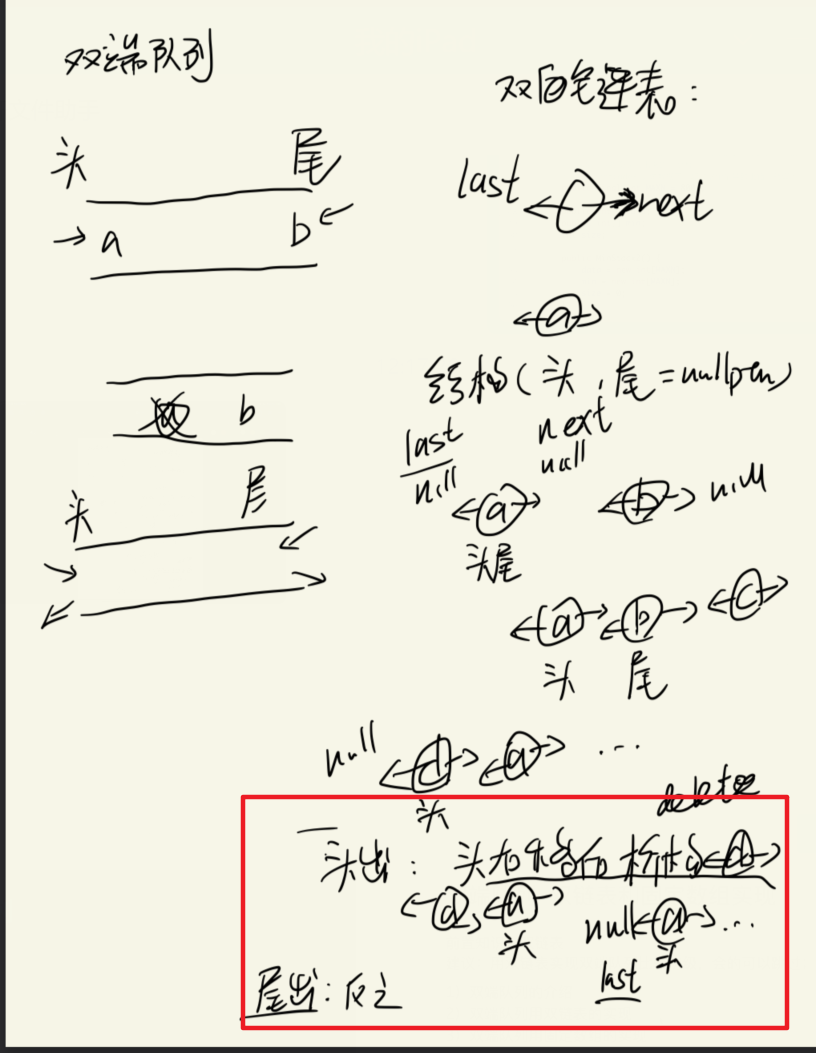 双端队列
头 尾
a b
b
头 尾
双向链表:
last next
a
结构(头,尾=null
last next
null null
a b null
头尾
a b c
头 尾
null d a ...
头
delete
头出: 头右移后析构 d
d a null a ...
头 头
last
尾出: 反之